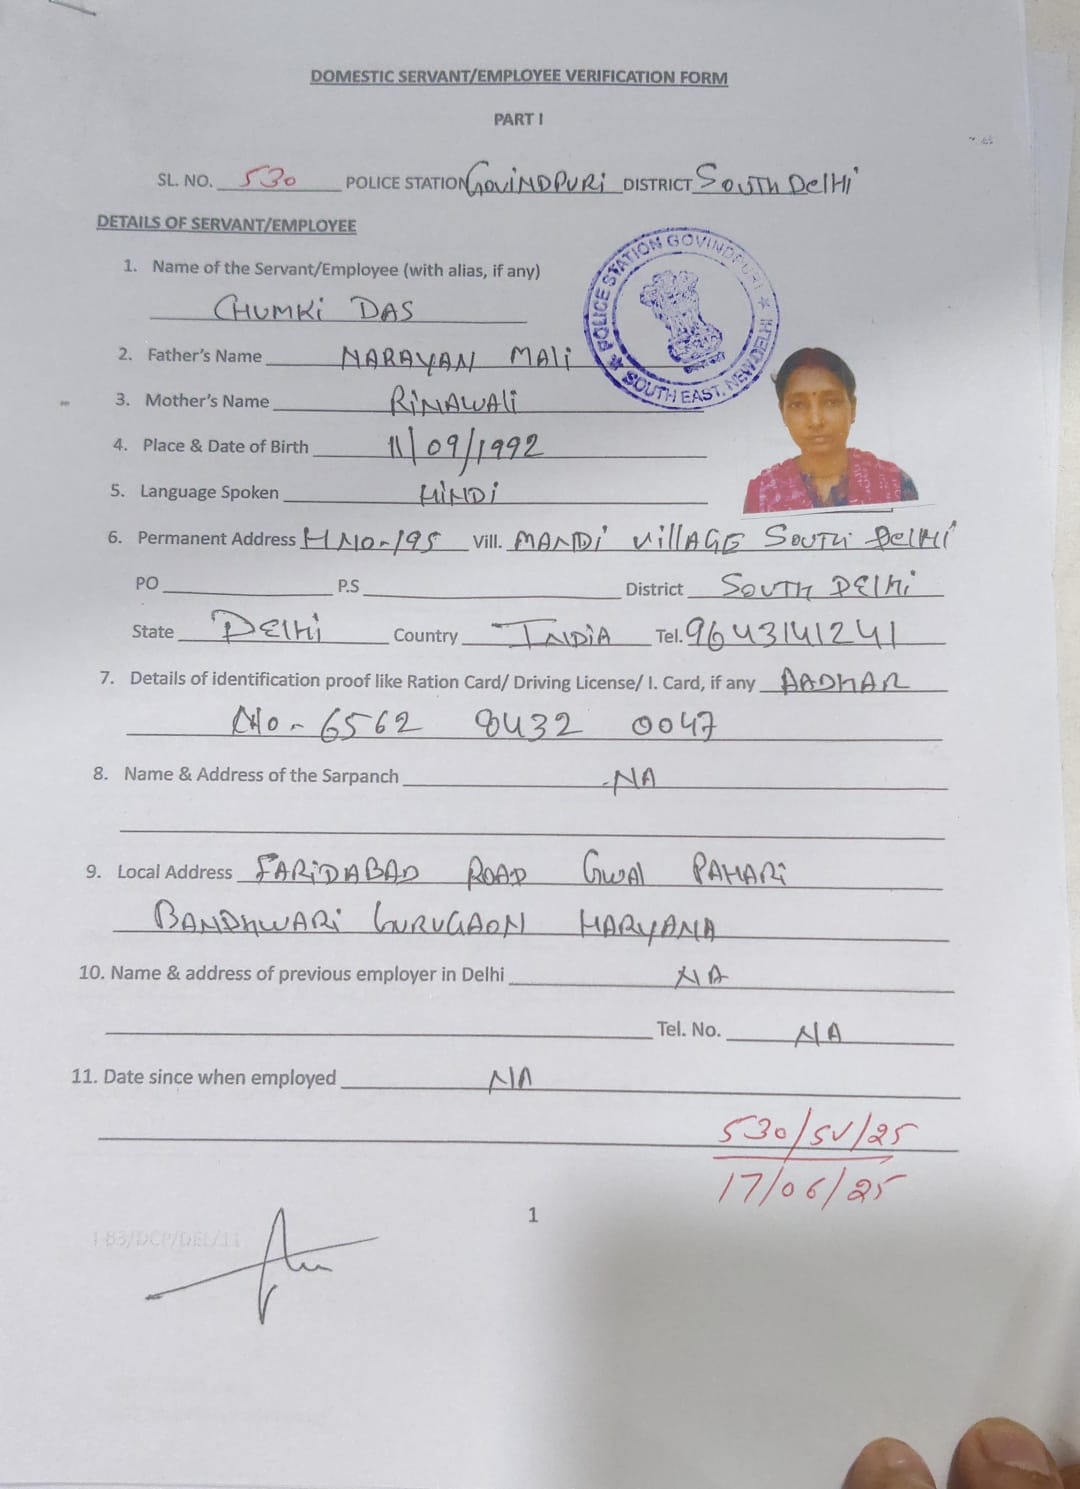 DOMESTIC SERVANT/EMPLOYEE VERIFICATION FORM
PART I
SL. NO. 530 POLICE STATION GOVINDPURI DISTRICT SOUTH DELHI
DETAILS OF SERVANT/EMPLOYEE
POLICE STATION GOVINDPURI ★ SOUTH EAST, NEW DELHI ★
1. Name of the Servant/Employee (with alias, if any)
CHUMKI DAS
2. Father's Name NARAYAN MALI
3. Mother's Name RINAWALI
4. Place & Date of Birth 11/09/1992
5. Language Spoken HINDI
6. Permanent Address H NO-195 Vill. MANDI VILLAGE SOUTH DELHI
PO P.S District SOUTH DELHI
State DELHI Country INDIA Tel. 9643141241
7. Details of identification proof like Ration Card/ Driving License/ I. Card, if any AADHAR
NO - 6562 8432 0047
8. Name & Address of the Sarpanch NA
9. Local Address FARIDABAD ROAD GWAL PAHARI
BANDHWARI GURUGAON HARYANA
10. Name & address of previous employer in Delhi NA
Tel. No. NA
11. Date since when employed NA
530/SV/25
17/06/25
1